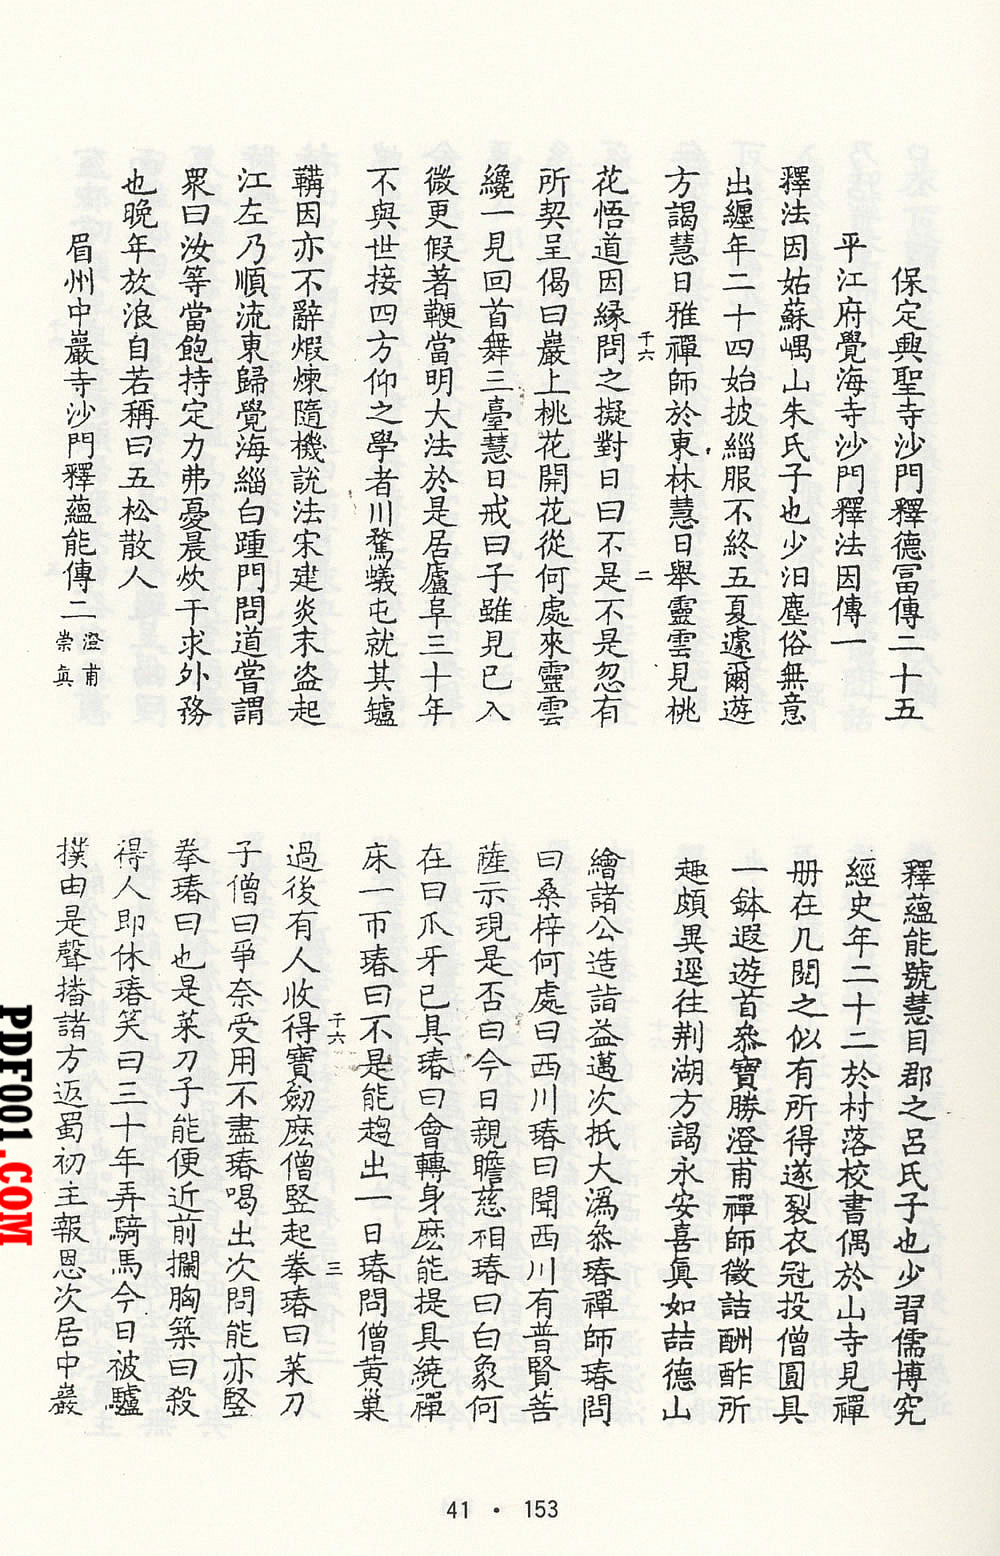 保定興聖寺沙門釋德冨傳二十五
平江府覺海寺沙門釋法因傳一
釋法因姑蘇嵎山朱氏子也少汩塵俗無意
出纏年二十四始披緇服不終五夏遽爾遊
方謁慧日雅禪師於東林慧日舉靈雲見桃
千六
二
花悟道因緣問之擬對日曰不是不是忽有
所契呈偈曰巖上桃花開花從何處來靈雲
纔一見回首舞三臺慧日戒曰子雖見已入
微更假著鞭當明大法於是居廬阜三十年
不與世接四方仰之學者川騖蟻屯就其鑪
鞲因亦不辭煆煉隨機說法宋建炎末盜起
江左乃順流東歸覺海緇白踵門問道甞謂
眾曰汝等當飽持定力弗憂晨炊干求外務
也晚年放浪自若稱曰五松散人
眉州中巖寺沙門釋蘊能傳二 澄甫 崇真
釋蘊能號慧目郡之呂氏子也少習儒博究
經史年二十二於村落校書偶於山寺見禪
册在几閱之似有所得遂裂衣冠投僧圓具
一鉢遐遊首叅寶勝澄甫禪師徵詰酬酢所
趣頗異逕往荆湖方謁永安喜眞如喆德山
繪諸公造詣益邁次抵大溈叅瑃禪師瑃問
曰桑梓何處曰西川瑃曰聞西川有普賢菩
薩示現是否曰今日親瞻慈相瑃曰白象何
在曰爪牙已具瑃曰會轉身麽能提具繞禪
床一帀瑃曰不是能趨出一日瑃問僧黄巢
千六
三
過後有人收得寶劒麽僧竪起拳瑃曰菜刀
子僧曰爭奈受用不盡瑃喝出次問能亦竪
拳瑃曰也是菜刀子能便近前攔胸築曰殺
得人即休瑃笑曰三十年弄騎馬今日被驢
撲由是聲揩諸方返蜀初主報恩次居中巖
41 · 153
PDF001.COM